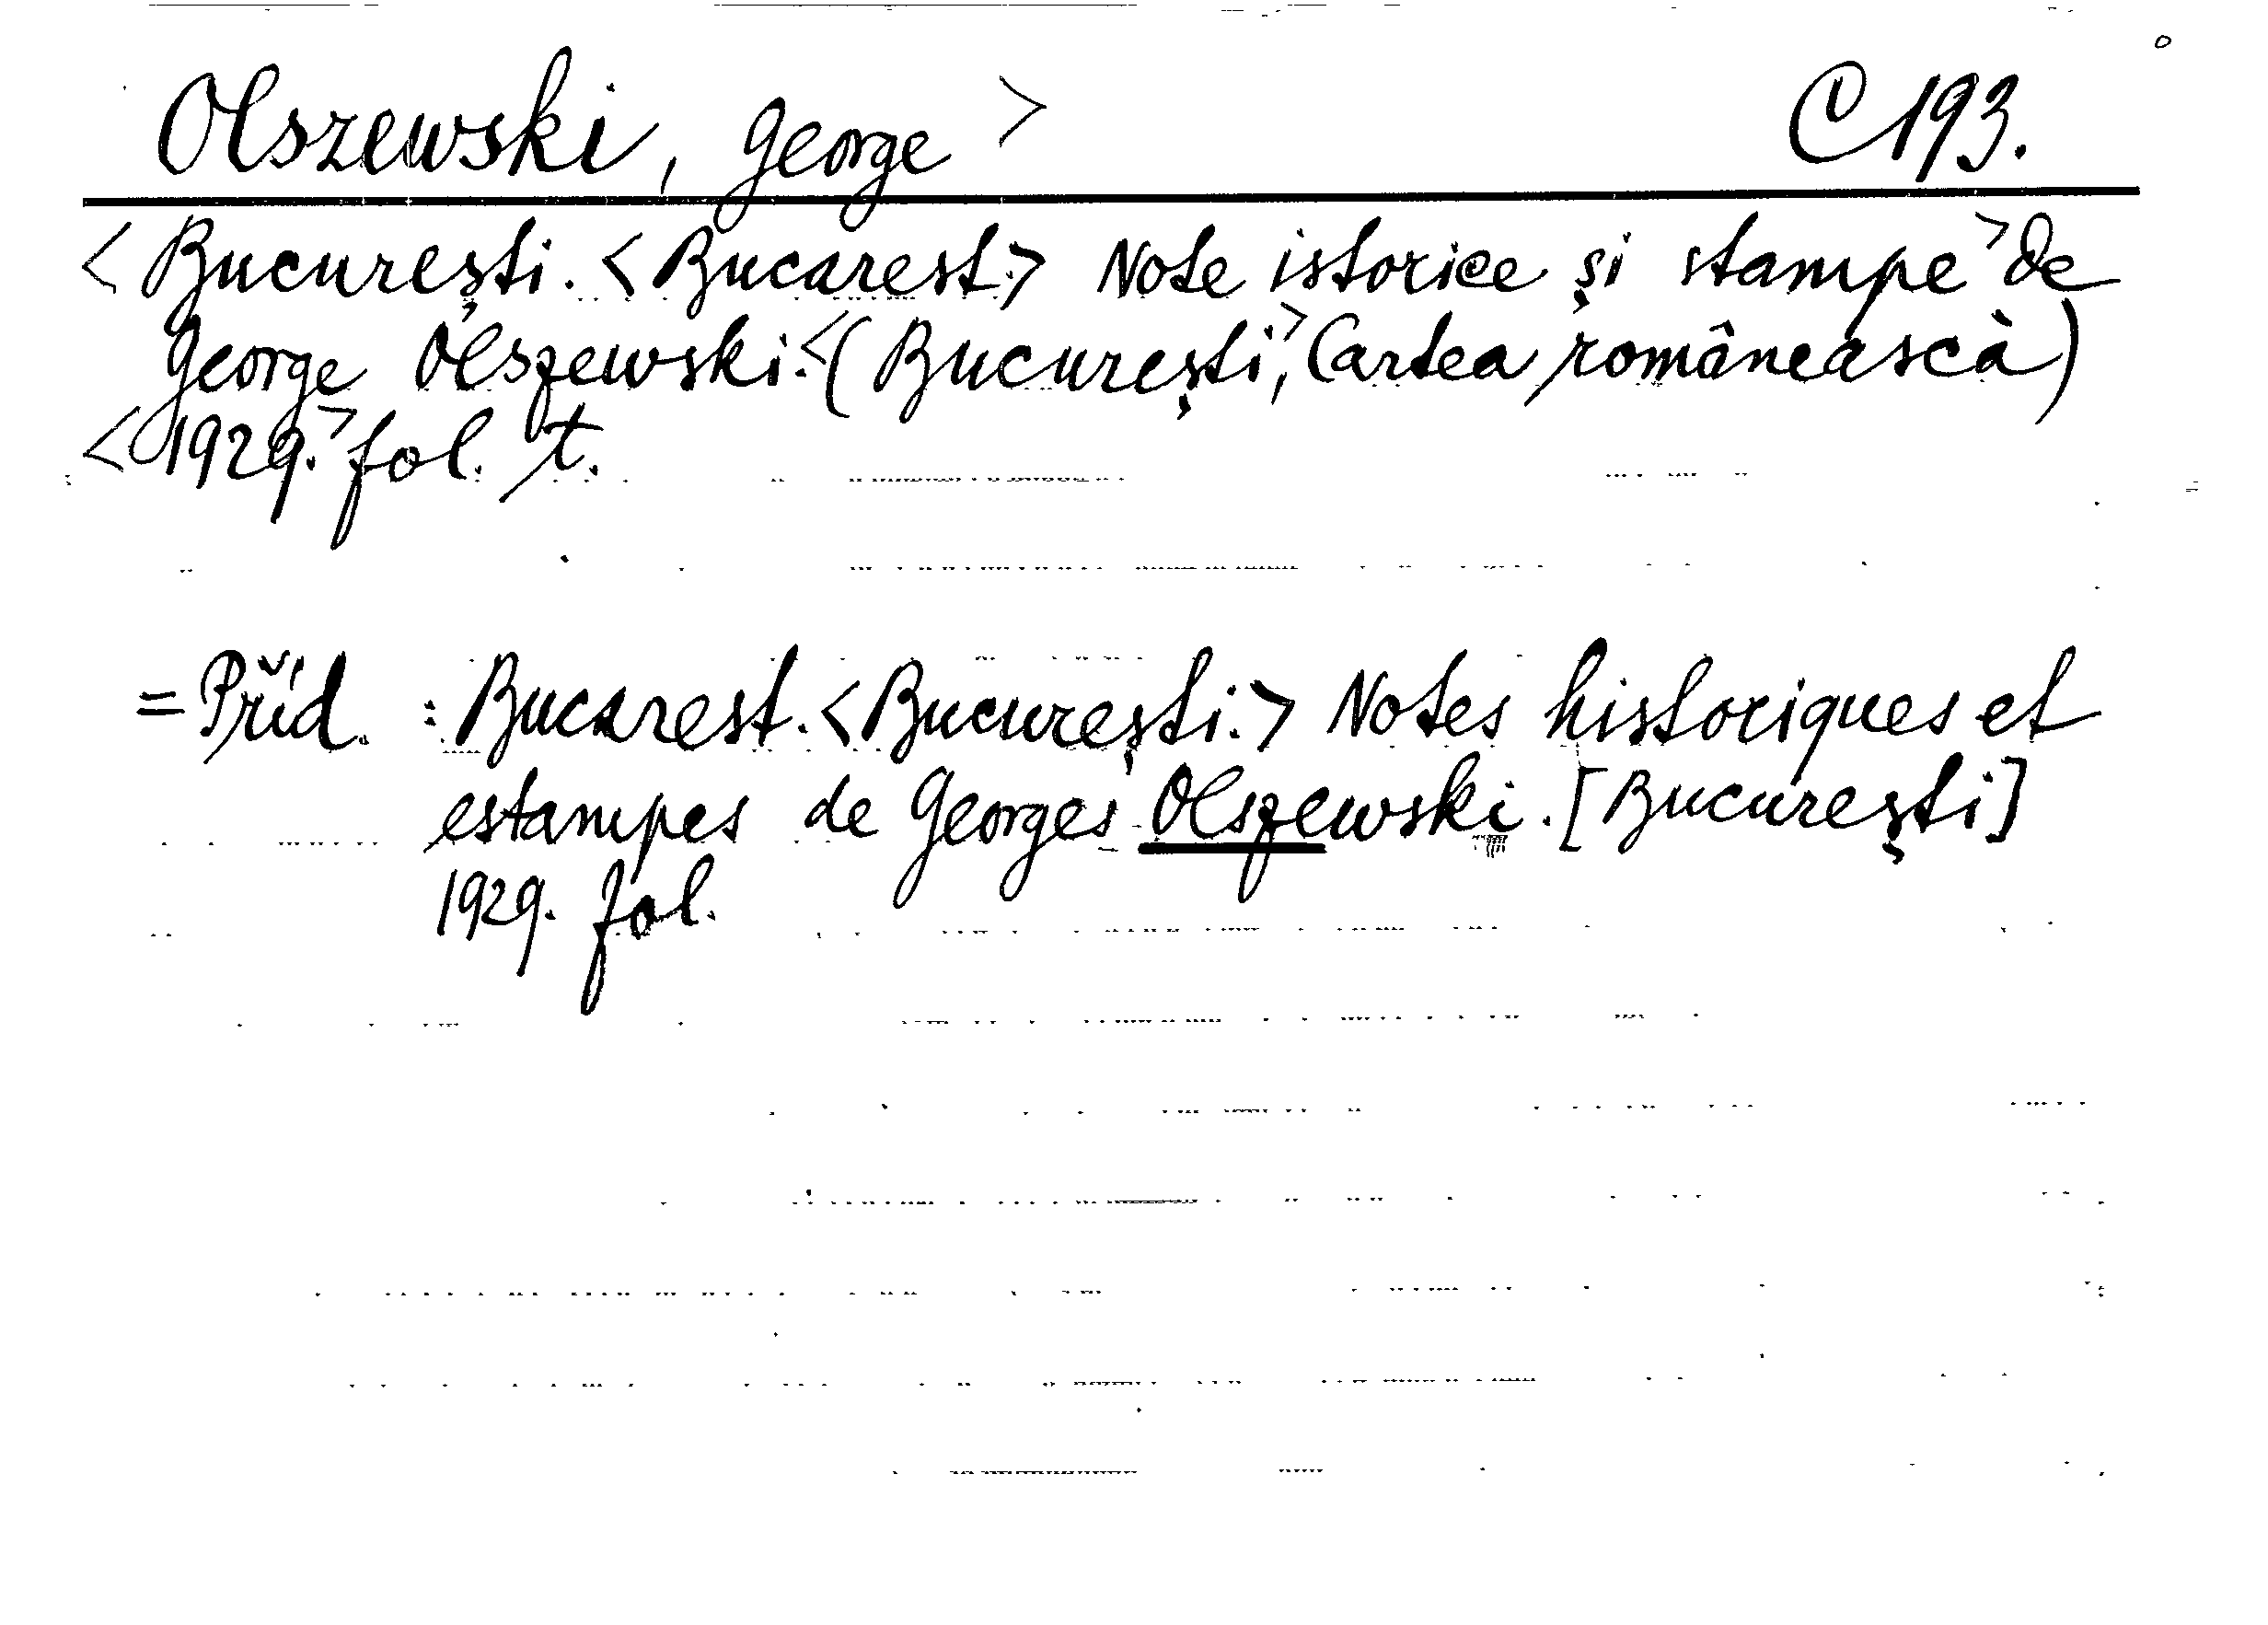 Olszewski, George > C 193.
<București. <Bucarest.> Note istorice și stampe> de
George Olszewski.<(București,> Cartea româneascà)
<1929.> fol. t.
=Příd. : Bucarest. <București.> Notes historiques et
estampes de Georges Olszewski. [București]
1929. fol.